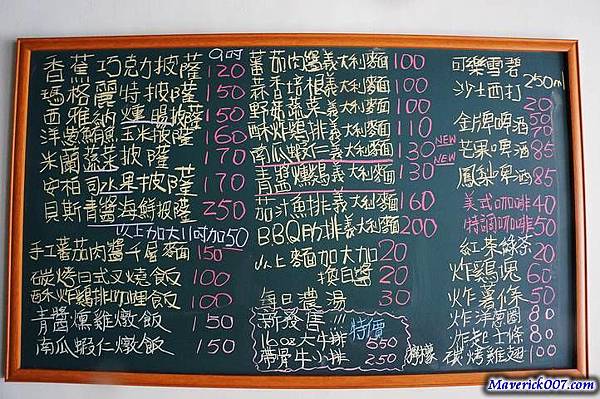 9吋
香蕉巧克力披薩 120
瑪格麗特披薩 150
西雅納燻腸披薩 150
洋蔥鮪魚玉米披薩 160
米蘭蔬菜披薩 170
安柏司水果披薩 170
貝斯青醬海鮮披薩 250
以上加大11吋加50
手工蕃茄肉醬千層麵 150
碳烤日式叉燒飯 100
酥炸雞排咖哩飯 100
青醬燻雞燉飯 150
南瓜蝦仁燉飯 150
蕃茄肉醬義大利麵 100
蒜香培根義大利麵 100
野菇蔬菜義大利麵 100
酥炸雞排義大利麵 110
南瓜蝦仁義大利麵 130 NEW
青醬燻雞義大利麵 130 NEW
茄汁魚排義大利麵 160
BBQ肋排義大利麵 200
以上麵加大加 20
換白醬 20
每日濃湯 30
新發售!!! 特價
16oz大牛排 550
帶骨牛小排 250
可樂雪碧
250ml
沙士西打 20
金牌啤酒 50
70
芒果啤酒 85
鳳梨啤酒 85
美式咖啡 40
特調咖啡 50
紅茶綠茶 20
炸雞塊 60
炸薯條 50
炸洋蔥圈 80
炸起士條 80
檸檬碳烤雞翅 100
Maverick007.com